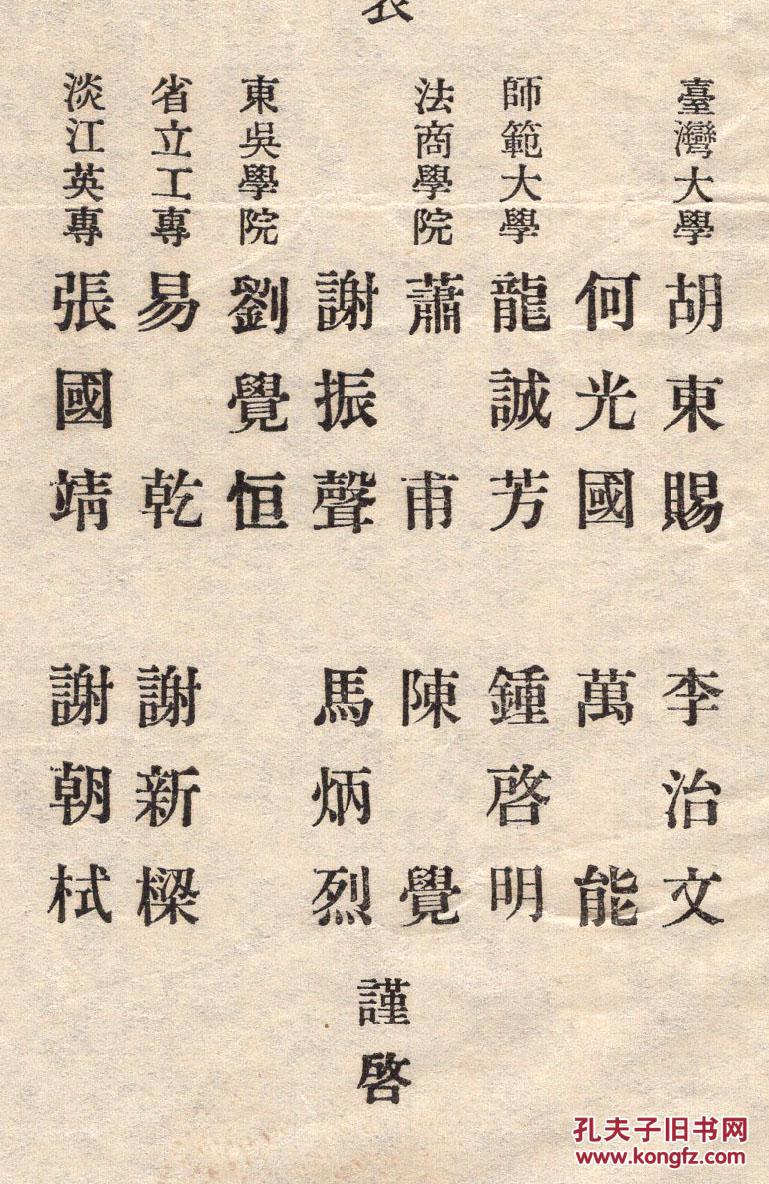 表
臺灣大學 胡東賜 李治文
何光國 萬能
師範大學 龍誠芳 鍾啓明
法商學院 蕭甫 陳覺
謝振聲 馬炳烈
東吳學院 劉覺恒
省立工專 易乾 謝新樑
淡江英專 張國靖 謝朝栻
謹啓
孔夫子旧书网
www.kongfz.com